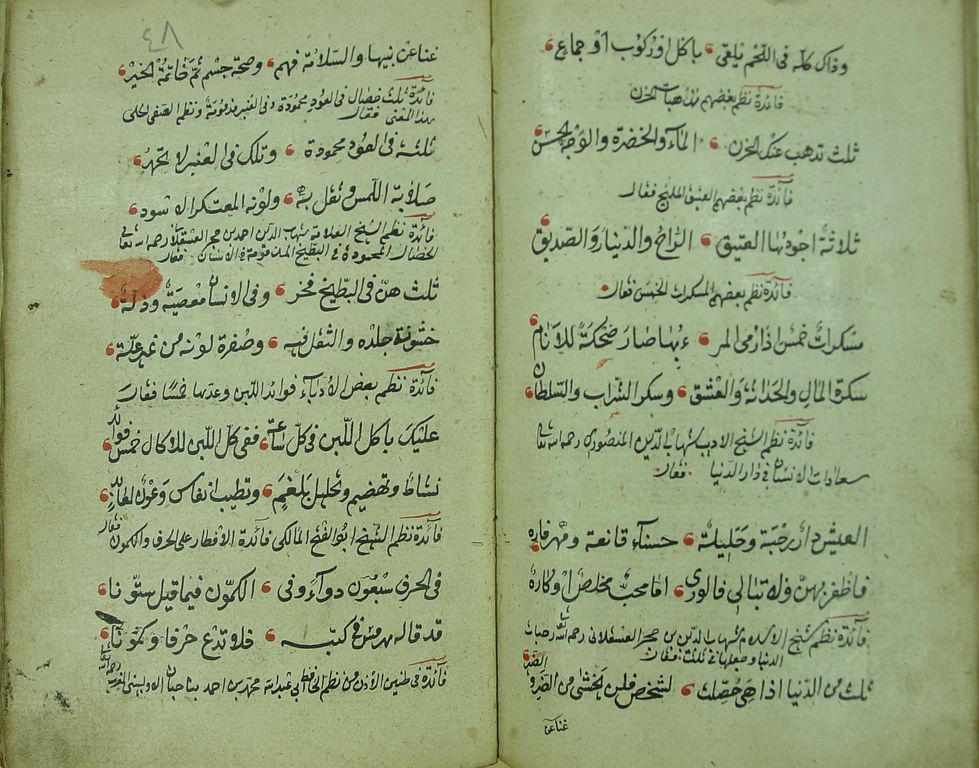 وذاك كله في اللحم يلقى باكل او ركوب او جماع
فائدة نظم بعضهم الحزن
ثلث تذهب عنك الحزن الماء والخضرة والوجه الحسن
فائدة نظم بعضهم العتيق المليح فقال
ثلاثة اجودها العتيق الراح والدينار والصديق
فائدة نظم بعضهم المسكرات الخمس فقال
سكرات خمس اذا رمى المر ء بها صار ضحكة للانام
سكرة المال والحداثة والعشق وسكر الشراب والسلطان
فائدة نظم الشيخ الاديب شهاب الدين المنصوري رحمه الله تعالى
سعادات الانسان في دار الدنيا فقال
العيش دار رحبة وحليلة حسناء قانعة ومهر فاره
فاظفر بهن ولا تبالي فالورى اما محب مخلص او كاره
فائدة نظم شيخ الاسلام شهاب الدين بن حجر العسقلاني رحمه الله تعالى
الدنيا وجعلها ثلثة فقال
ثلث من الدنيا اذا هي حصلت لشخص فلن يخشى من الضر والضير
غنا عن
٤٨
غنا عن بنيها والسلامة فهم وصحة جسم ثم خاتمة الخير
فائدة ثلث خصال في العود محمودة وفي الغير مذمومة ونظم الصفي الحلي
هذا المعنى فقال
ثلثة في العود محمودة وتلك في العنبر لا تحمد
صلابة اللمس وثقل به ولونه المعتكر الاسود
فائدة نظم الشيخ العلامة شهاب الدين احمد بن حجر العسقلاني رحمه الله تعالى
الخصال المحمودة في البطيخ المذمومة في الانسان فقال
ثلث هن في البطيخ فخر وفي الانسان معصية وذلة
خشونة جلده والثقل فيه وصفرة لونه من غير علة
فائدة نظم بعض الادباء فوائد اللبن وعدها خمسا فقال
عليك باكل اللبن في كل ساعة ففي كل اللبن للاكال خمس فوائد
نشاط وتهضيم وتحليل بلغم وتطييب انفاس
فائدة نظم الشيخ ابو الفتح المالكي فائدة الافطار على الحرف والكمون فقال
في الحرف سبعون دواء وفي الكمون فيما قيل ستونا
قد قاله هرمس في كتبه فلا تدع حرفا وكمونا
فائدة في طنين الاذن من نظم ابي عبد الله محمد بن احمد رحمه الله تعالى